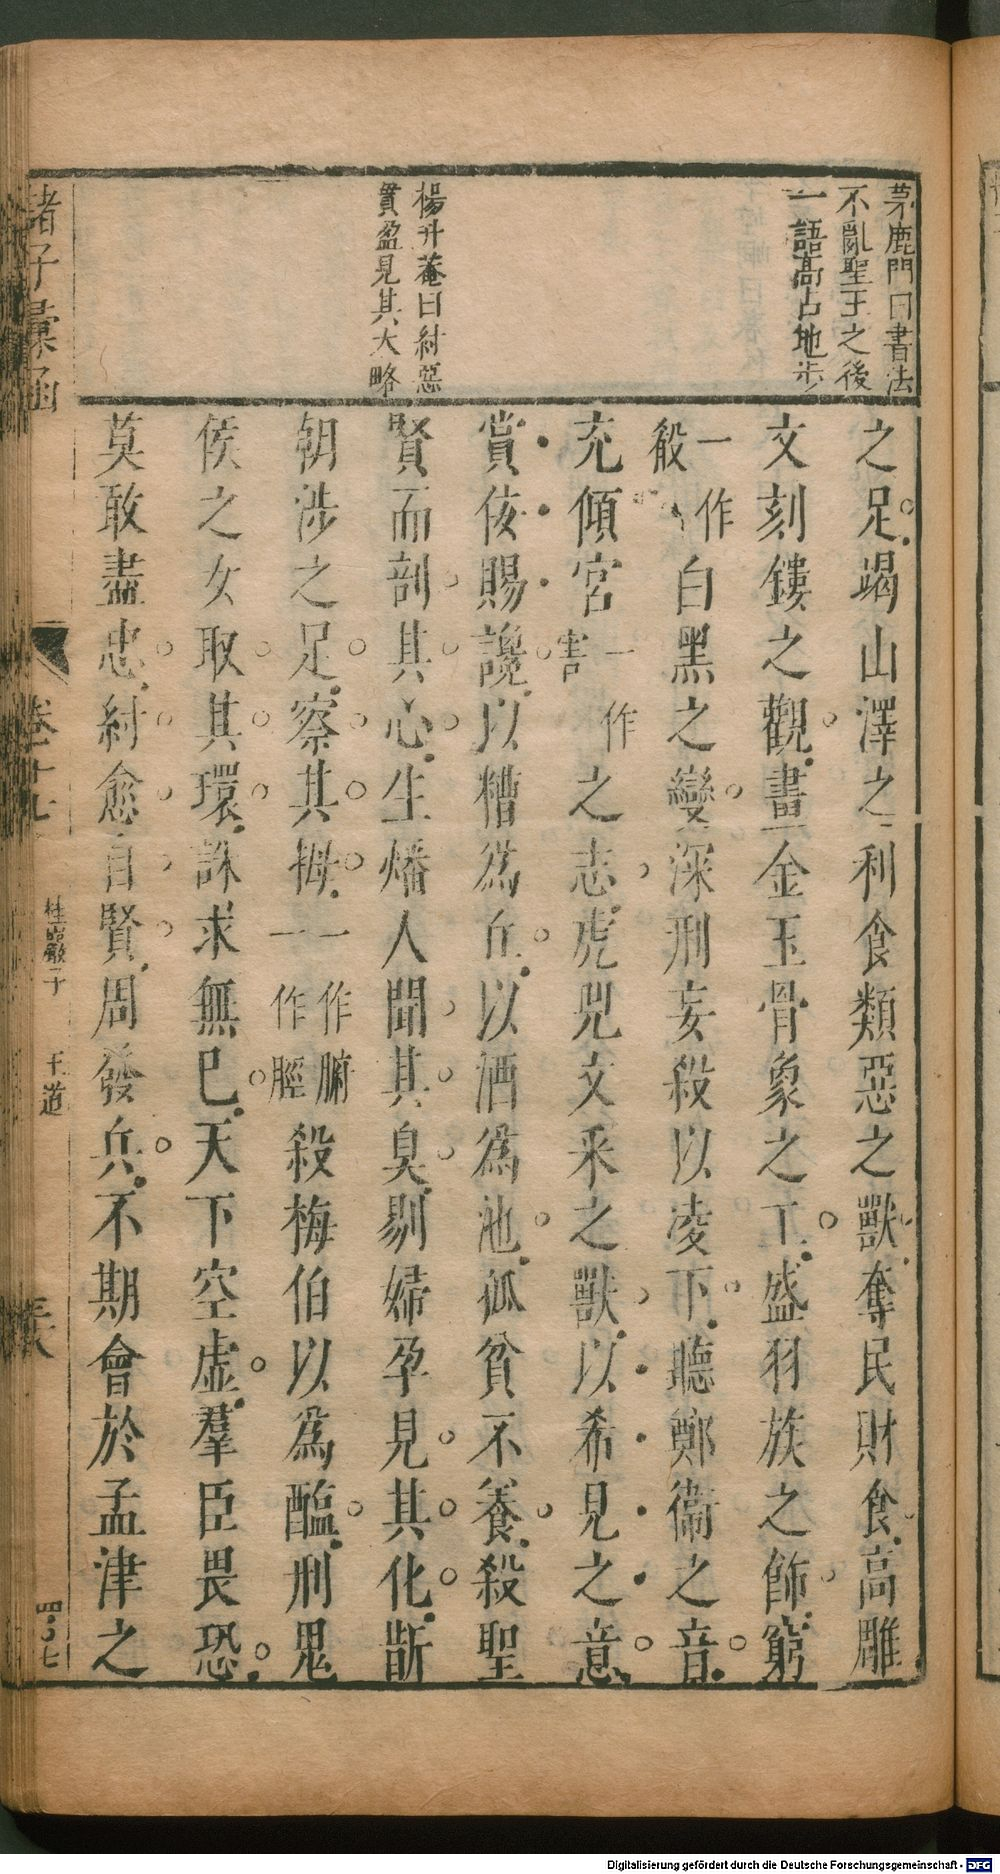 茅鹿門曰書法
不亂聖王之後
一語高占地步
楊升菴曰紂惡
貫盈見其大略
之足竭山澤之利食類惡之獸奪民財食高雕
文刻鏤之觀畫金玉骨象之工盛羽族之飾窮
一作殽白黑之變深刑妄殺以凌下聽鄭衞之音
充傾宮一作害之志虎兕文采之獸以希見之意
賞佞賜讒以糟爲丘以酒爲池孤貧不養殺聖
賢而剖其心生燔人聞其臭剔婦孕見其化斮
朝涉之足察其拇一作腑一作脛殺梅伯以爲醢刑鬼
侯之女取其環誅求無已天下空虛羣臣畏恐
莫敢盡忠紂愈自賢周發兵不期會於孟津之
諸子彙函
卷十七
桂巖子
王道
四百七
Digitalisierung gefördert durch die Deutsche Forschungsgemeinschaft - DFG